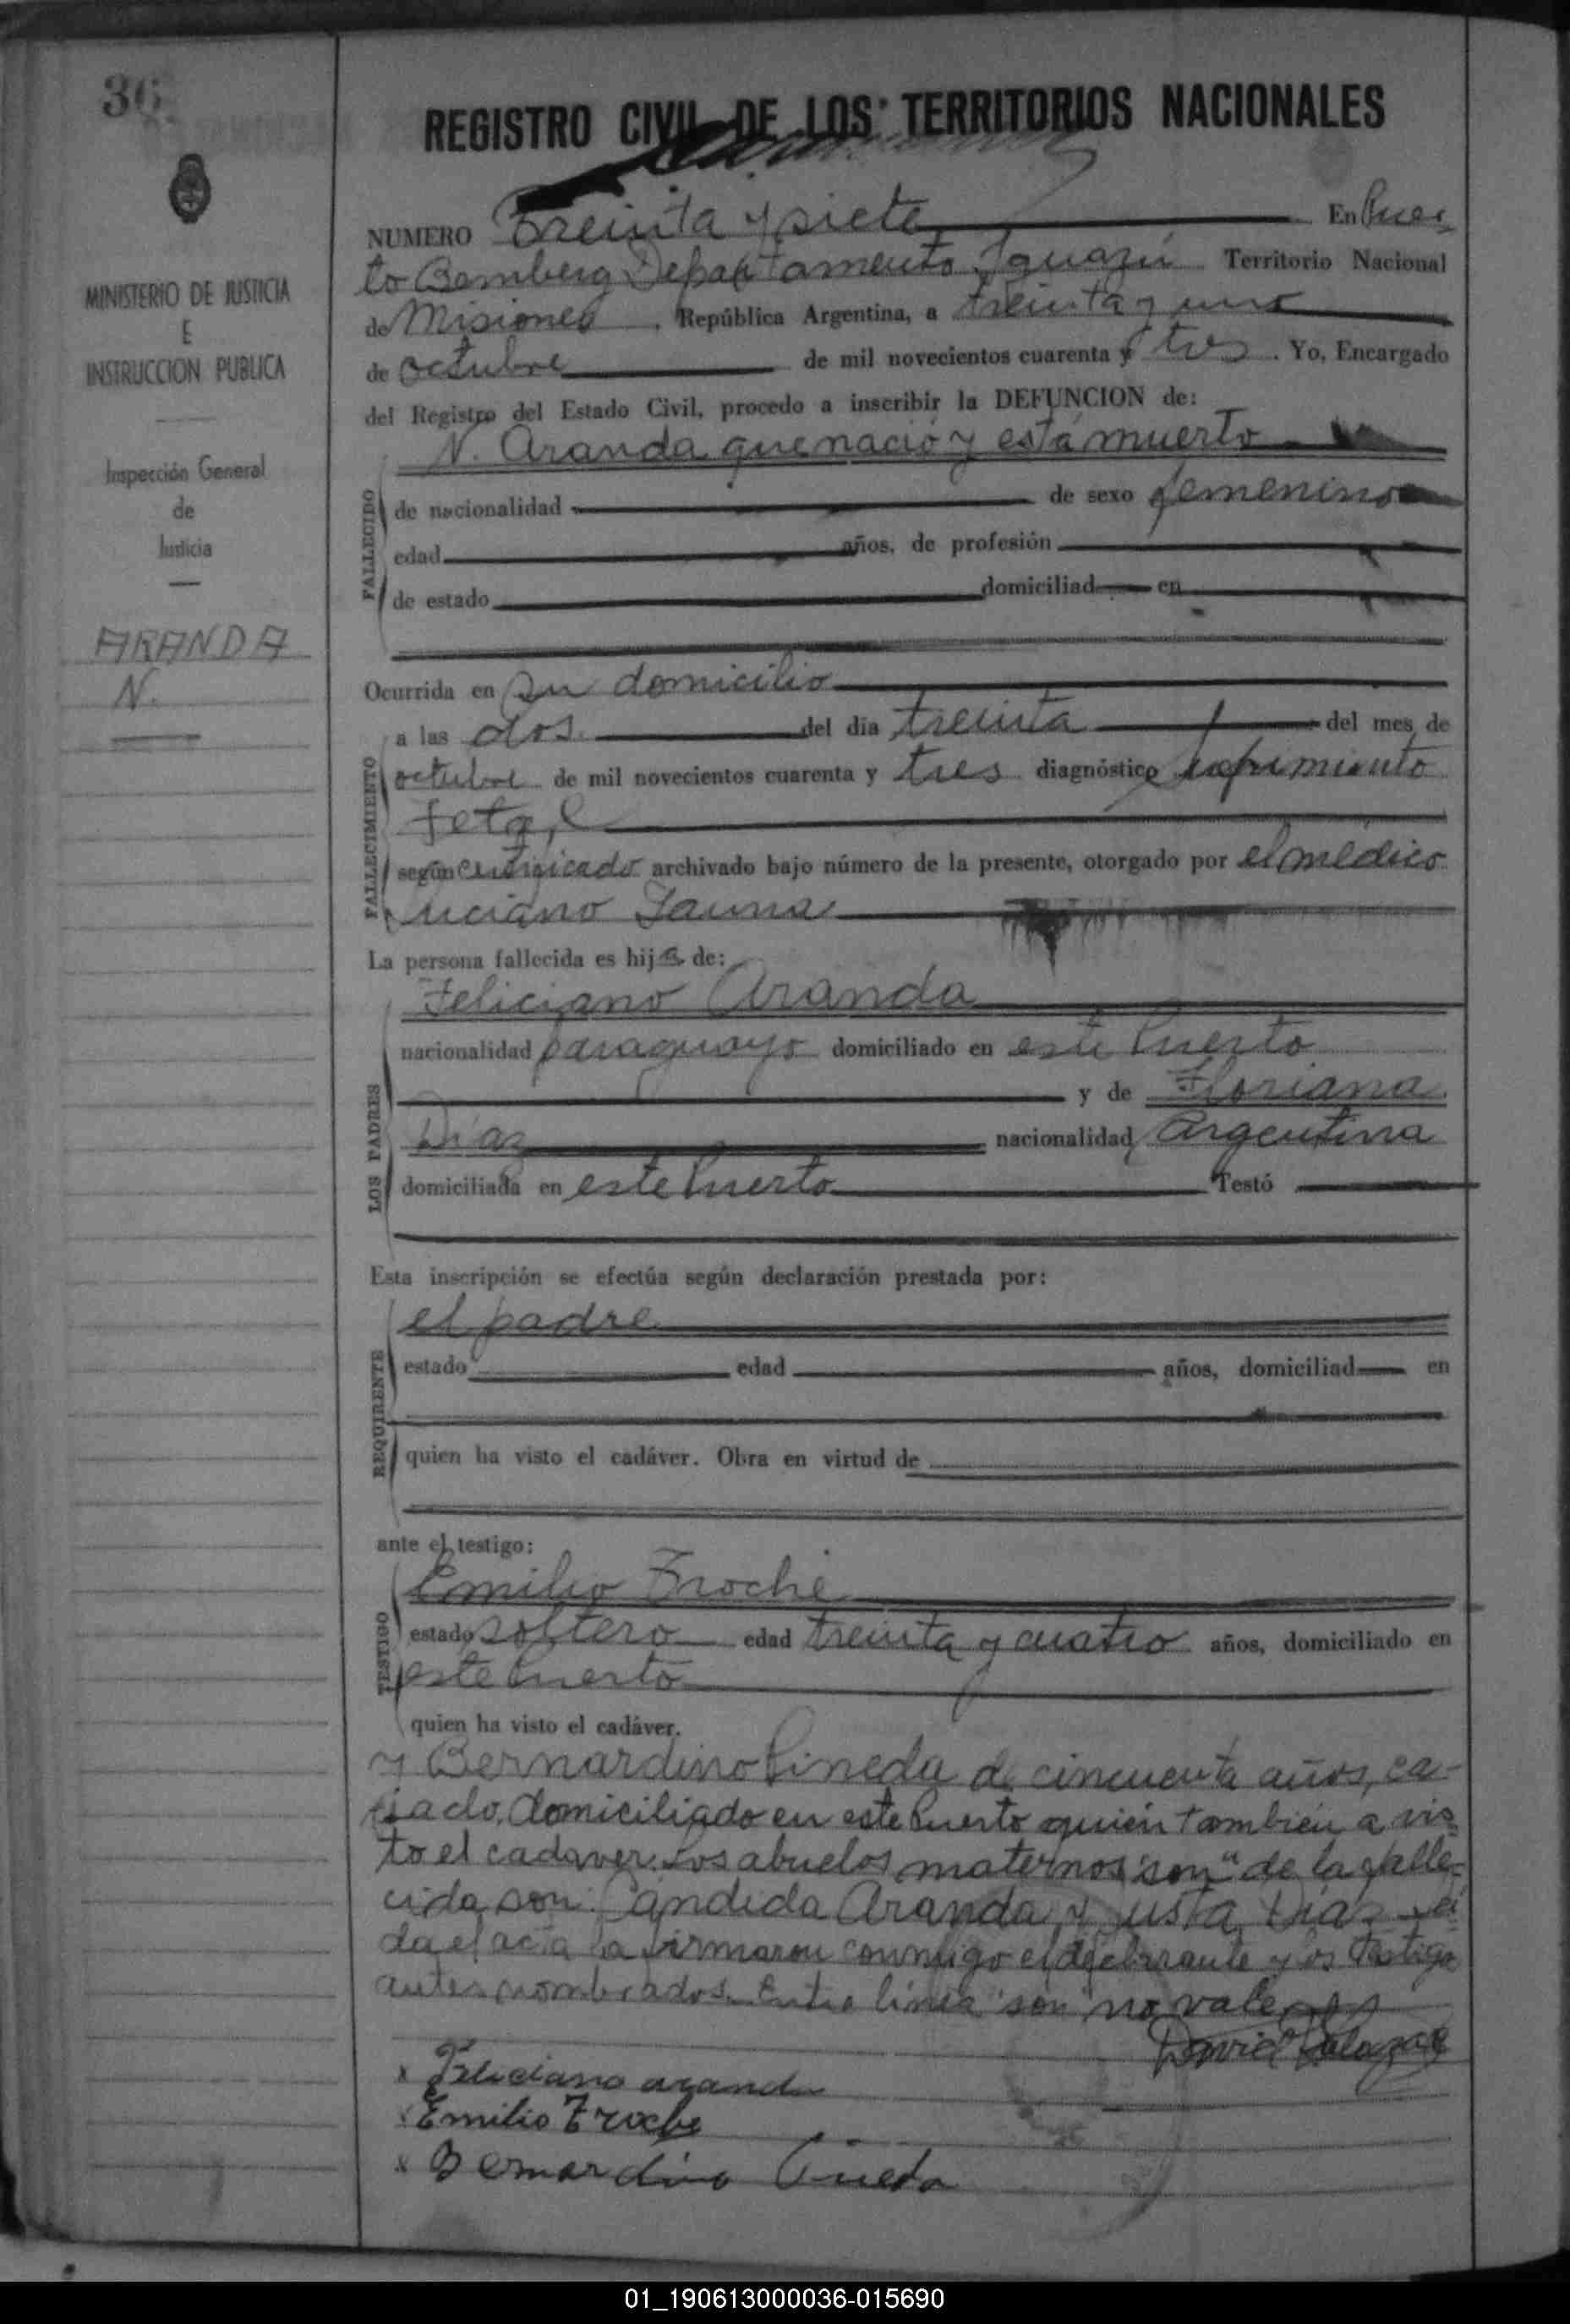 36
REGISTRO CIVIL DE LOS TERRITORIOS NACIONALES
MINISTERIO DE JUSTICIA
E
INSTRUCCION PUBLICA
Inspección General
de
Justicia
ARANDA
N.
NUMERO Treinta y siete En Puer
to Bemberg Departamento Iguazú Territorio Nacional
de Misiones. República Argentina, a treinta y uno
de octubre de mil novecientos cuarenta y tres. Yo, Encargado
del Registro del Estado Civil, procedo a inscribir la DEFUNCION de:
N. Aranda que nació y está muerto
FALLECIDO
de nacionalidad de sexo femenino
edad años, de profesión
de estado domiciliad en
Ocurrida en su domicilio
FALLECIMIENTO
a las dos. del día treinta del mes de
octubre de mil novecientos cuarenta y tres diagnóstico sufrimiento
fetal
según certificado archivado bajo número de la presente, otorgado por el médico
Luciano
La persona fallecida es hija de:
LOS PADRES
Feliciano Aranda
nacionalidad paraguayo domiciliado en este Puerto
y de Floriana
Díaz nacionalidad Argentina
domiciliada en este Puerto Testó
Esta inscripción se efectúa según declaración prestada por:
REQUIRENTE
el padre
estado edad años, domiciliad en
quien ha visto el cadáver. Obra en virtud de
ante el testigo:
TESTIGO
Emilio Troche
estado soltero edad treinta y cuatro años, domiciliado en
este Puerto
quien ha visto el cadáver.
y Bernardino Pineda de cincuenta años, ca-
sado, domiciliado en este Puerto quien también a vis
to el cadaver. Los abuelos maternos "son" de la falle-
cida son: Cándida Aranda y Justa Díaz Leí
da el acta la firmaron conmigo el declarante y los testigos
antes nombrados. Entre línea "son" no vale
David Salazar
x Feliciano aranda
x Emilio Troche
x Bernardino Pineda
01_190613000036-015690